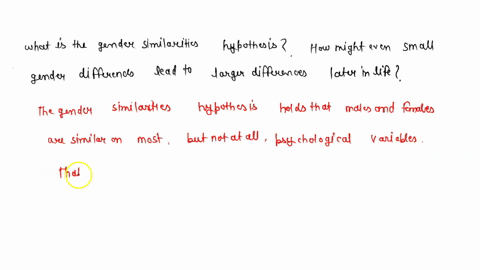 what is the gender similarities hypothesis? How might even small
gender differences lead to larger differences later in life?
The gender similarities hypothesis holds that males and females
are similar on most, but not at all, psychological variables.
That